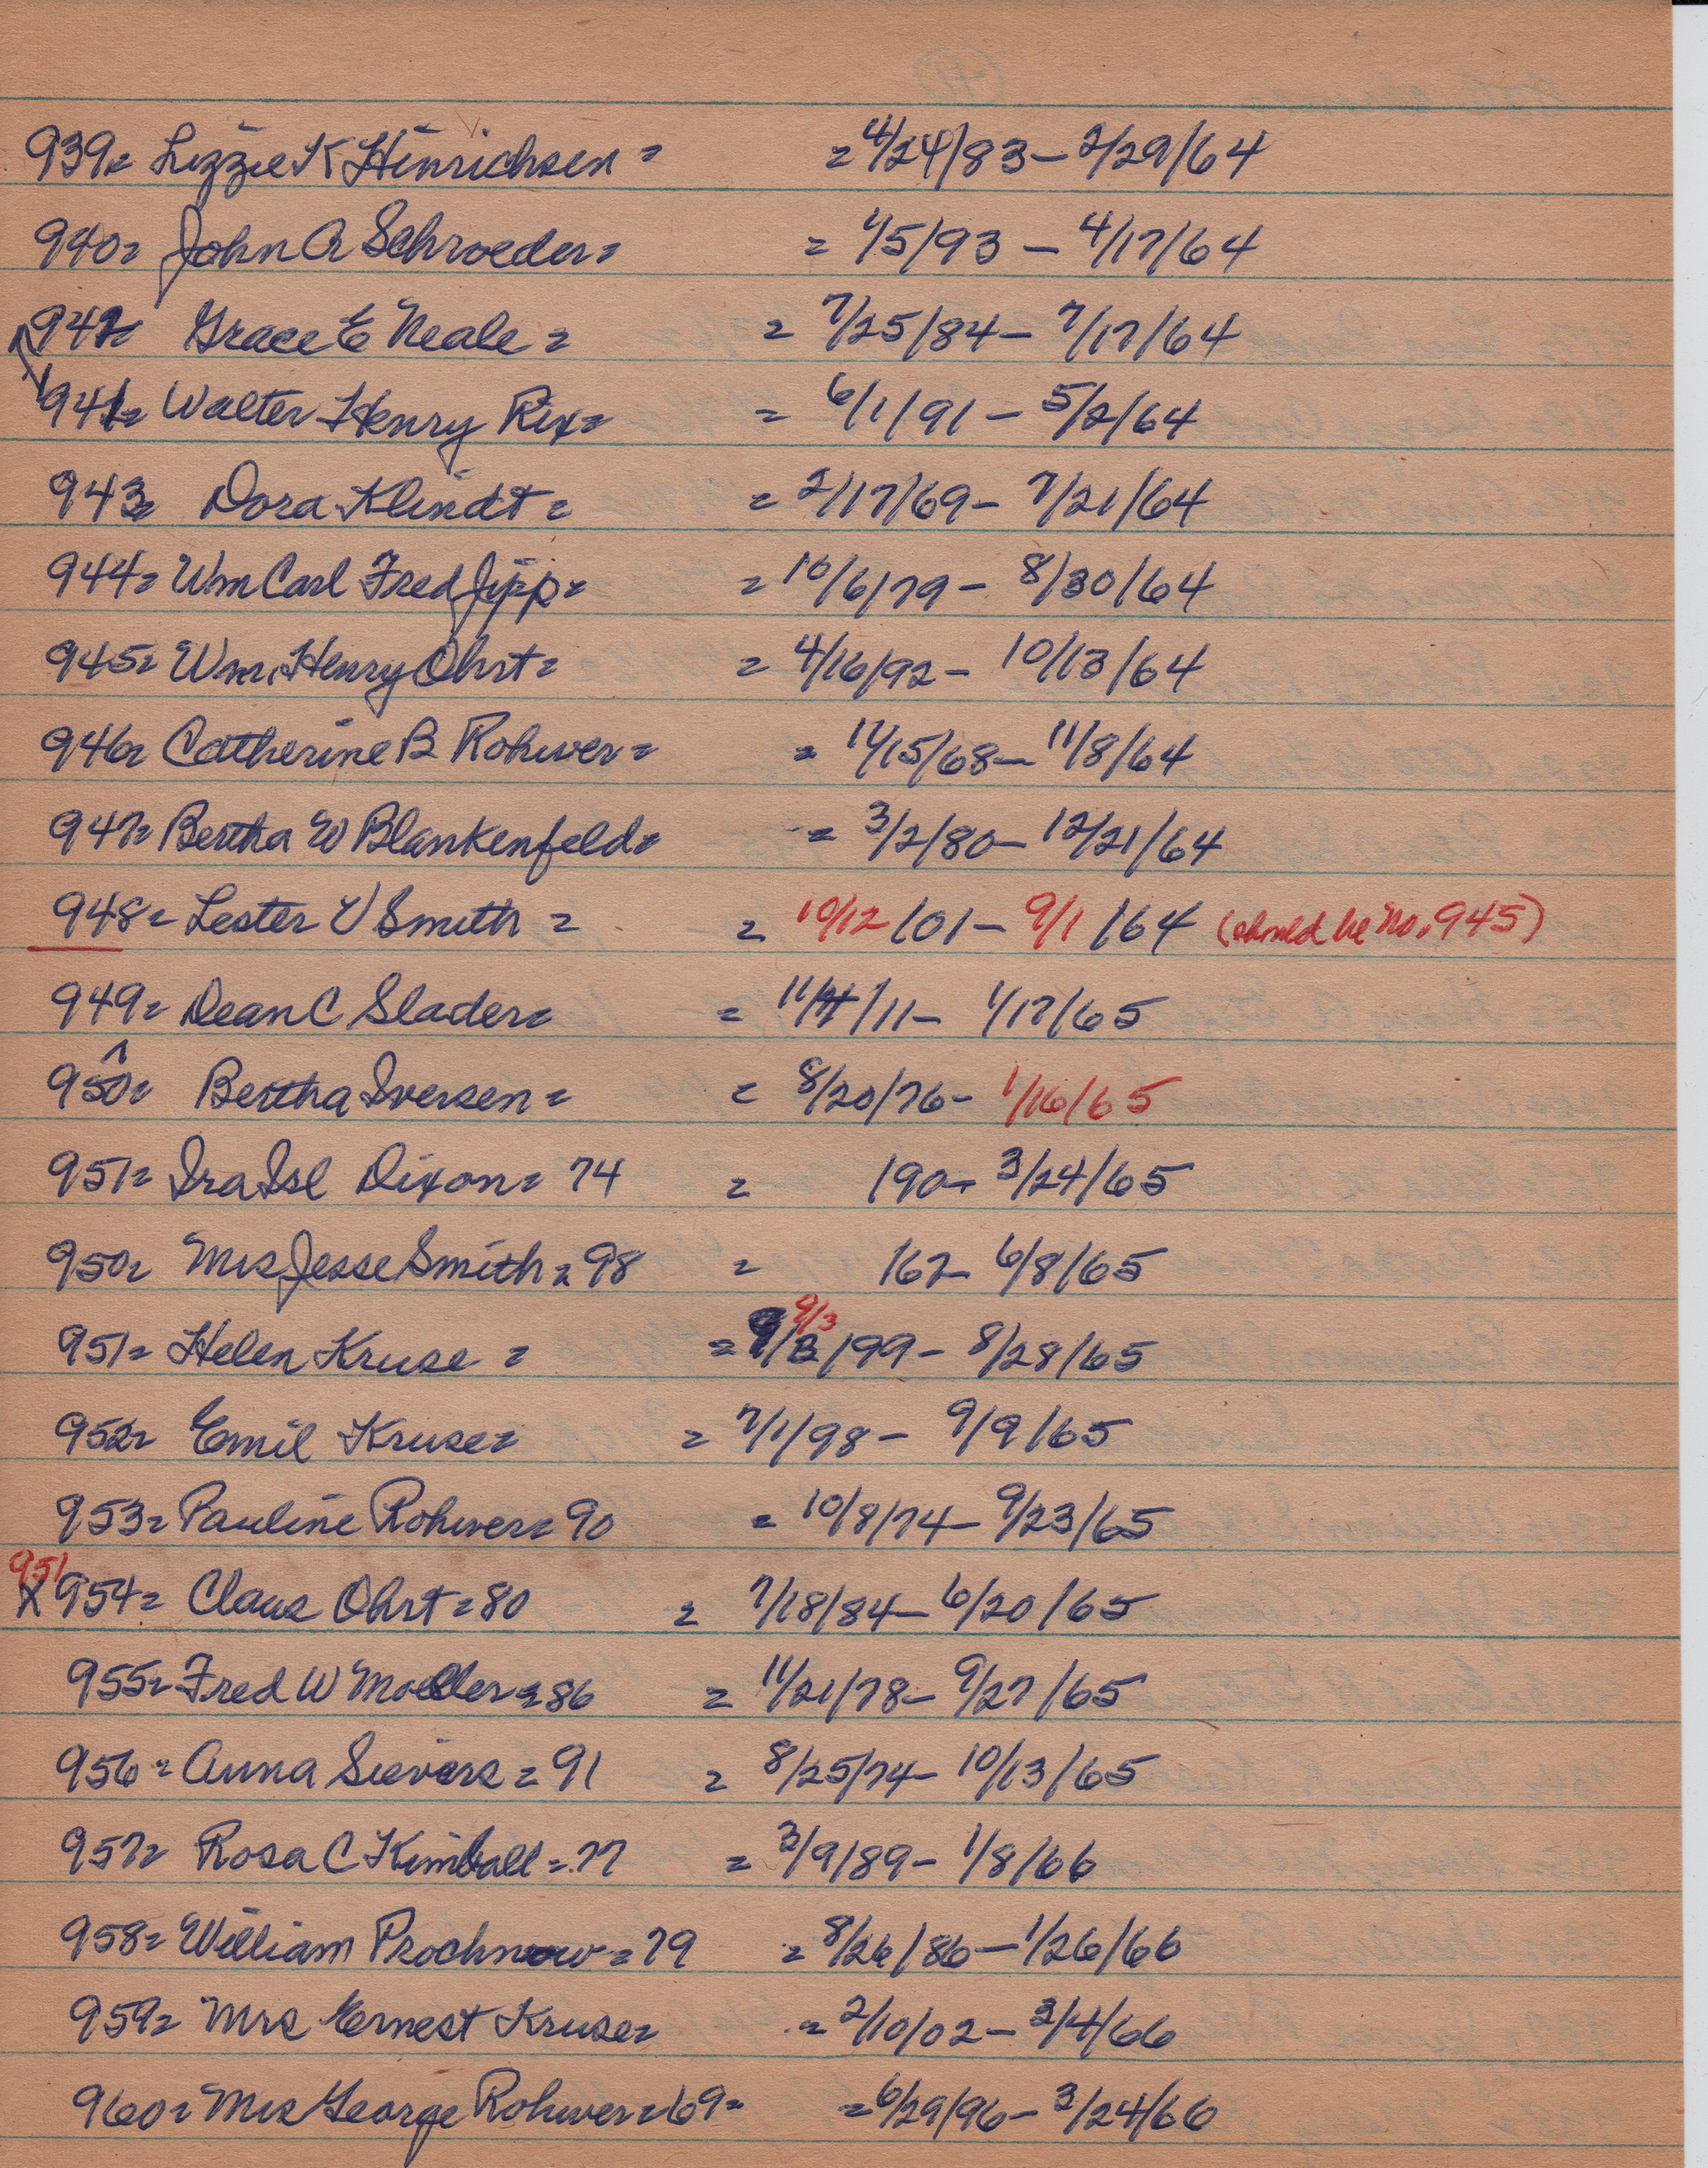 939= Lizzie K Hinrichsen = = 4/24/83 - 2/29/64
940= John A Schroeder= = 1/5/93 - 4/17/64
942 Grace E Neale = = 7/25/84 - 7/17/64
941= Walter Henry Rix= = 6/1/91 - 5/2/64
943= Dora Klindt = = 2/17/69 - 7/21/64
944= Wm Carl Fred Jipp= = 10/6/79 - 8/30/64
945= Wm. Henry Ohrt= = 4/16/92 - 10/13/64
946= Catherine B Rohwer= = 11/15/68 - 11/8/64
947= Bertha W Blankenfeld= = 3/2/80 - 12/21/64
948= Lester V Smith = = 10/12/01 - 9/1/64 (should be No. 945)
949= Dean C Slader= = 11/4/11 - 1/17/65
950= Bertha Iversen= = 8/20/76 - 1/16/65
951= Ira Isl Dixon= 74 = /90 - 3/24/65
950= Mrs Jesse Smith= 98 = /67 - 6/8/65
9/3
951= Helen Kruse = = 9/3/99 - 8/28/65
952= Emil Kruse= = 7/1/98 - 9/9/65
953= Pauline Rohwer= 90 = 10/8/74 - 9/23/65
951
X 954= Claus Ohrt= 80 = 7/18/84 - 6/20/65
955= Fred W Moeller= 86 = 11/21/78 - 9/27/65
956= Anna Sievers= 91 = 8/25/74 - 10/13/65
957= Rosa C Kimball= 77 = 3/9/89 - 1/8/66
958= William Prochnow= 79 = 8/26/86 - 1/26/66
959= Mrs Ernest Kruse= = 2/10/02 - 3/4/66
960= Mrs George Rohwer= 69= = 6/29/96 - 3/24/66